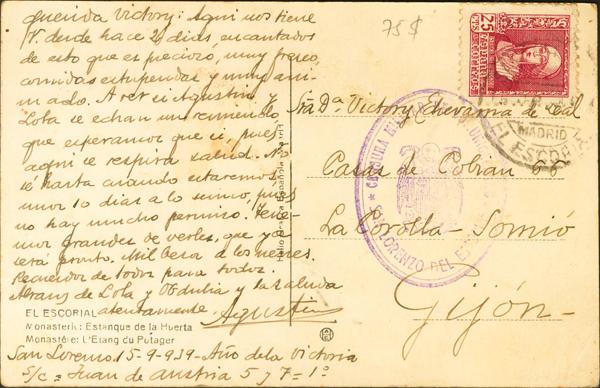 Querida Victory: Aqui nos tiene
V. desde hace 4 dias encantados
de esto que es precioso, muy fresco,
comidas estupendas y muy ani-
mado. A ver si Agustin y
Lola se echan un remiendo,
que esperamos que si, pues
aqui se respira salud. No
se hasta cuando estaremos
unos 10 dias a lo sumo, pues
no hay mucho permiso. Tene-
mos grandes de verles, que ya
será pronto. Mil besos a los nenes.
Recuerdos de todos para todos.
Abrazos de Lola y Obdulia y la saluda
atentamente Agustin
EL ESCORIAL
Monasterio: Estanque de la Huerta
Monastère: L'Etang du Potager
San Lorenzo 15-9-939 - Año de la Victoria
S/c = Juan de Austria 5 y 7 = 1º
75$
25
MADRID
EL ESCORIAL
Sra Dª Victory Echevarria de Leal
Casas de Cobian 66
La Corolla - Somió
Gijón -
CENSURA MILITAR
SAN LORENZO DEL ESCORIAL